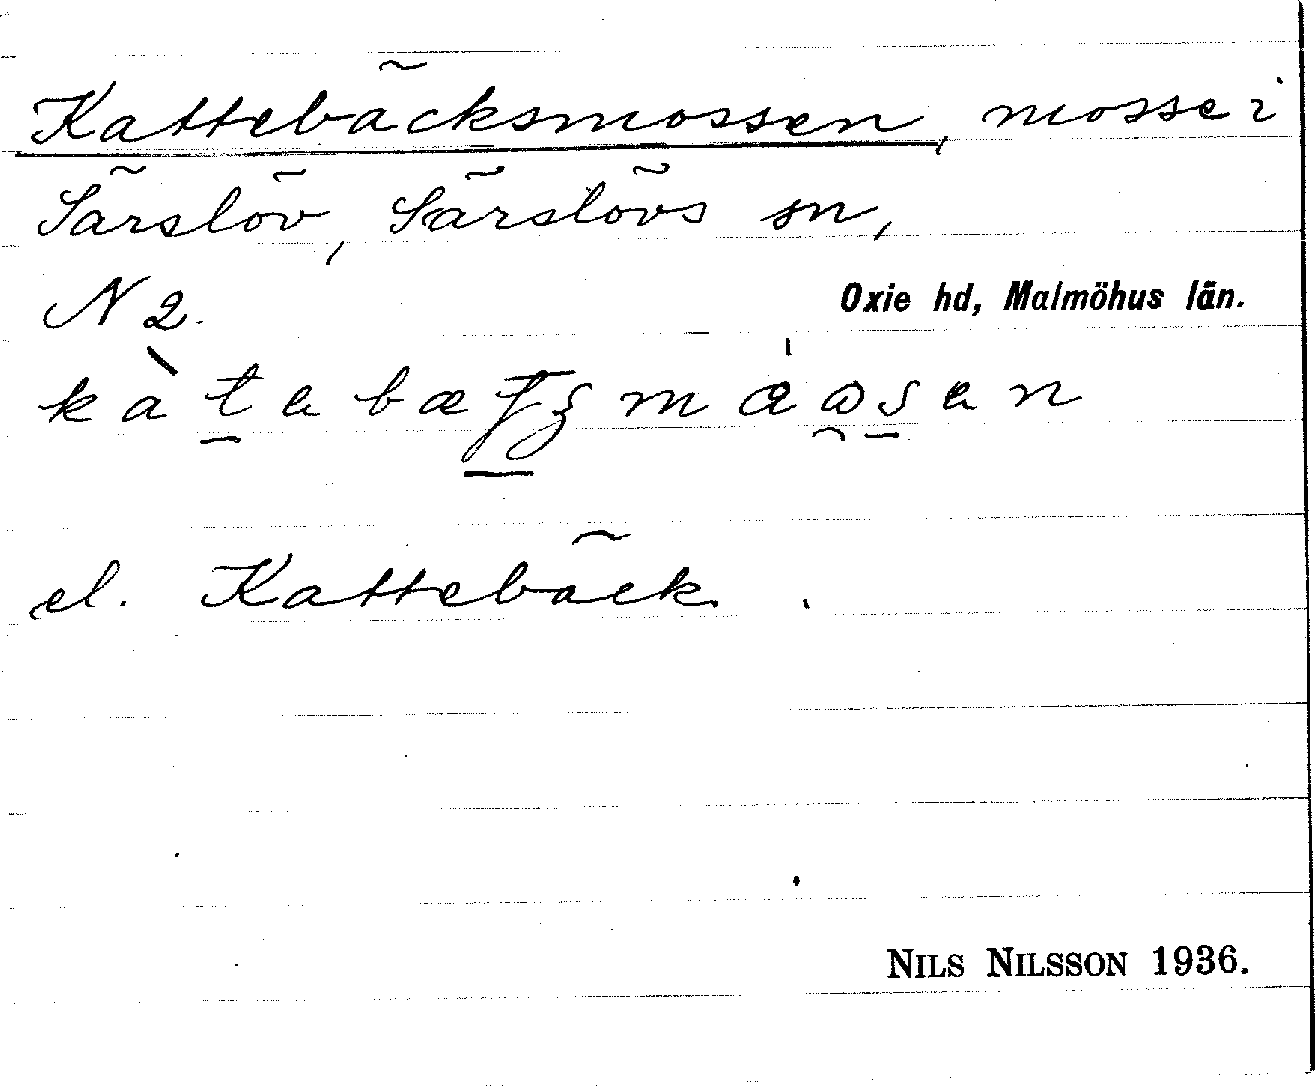 Kattebäcksmossen, mosse i
Särslöv, Särslövs sn,
N 2.
Oxie hd, Malmöhus län.
el. Kattebäck.
NILS NILSSON 1936.